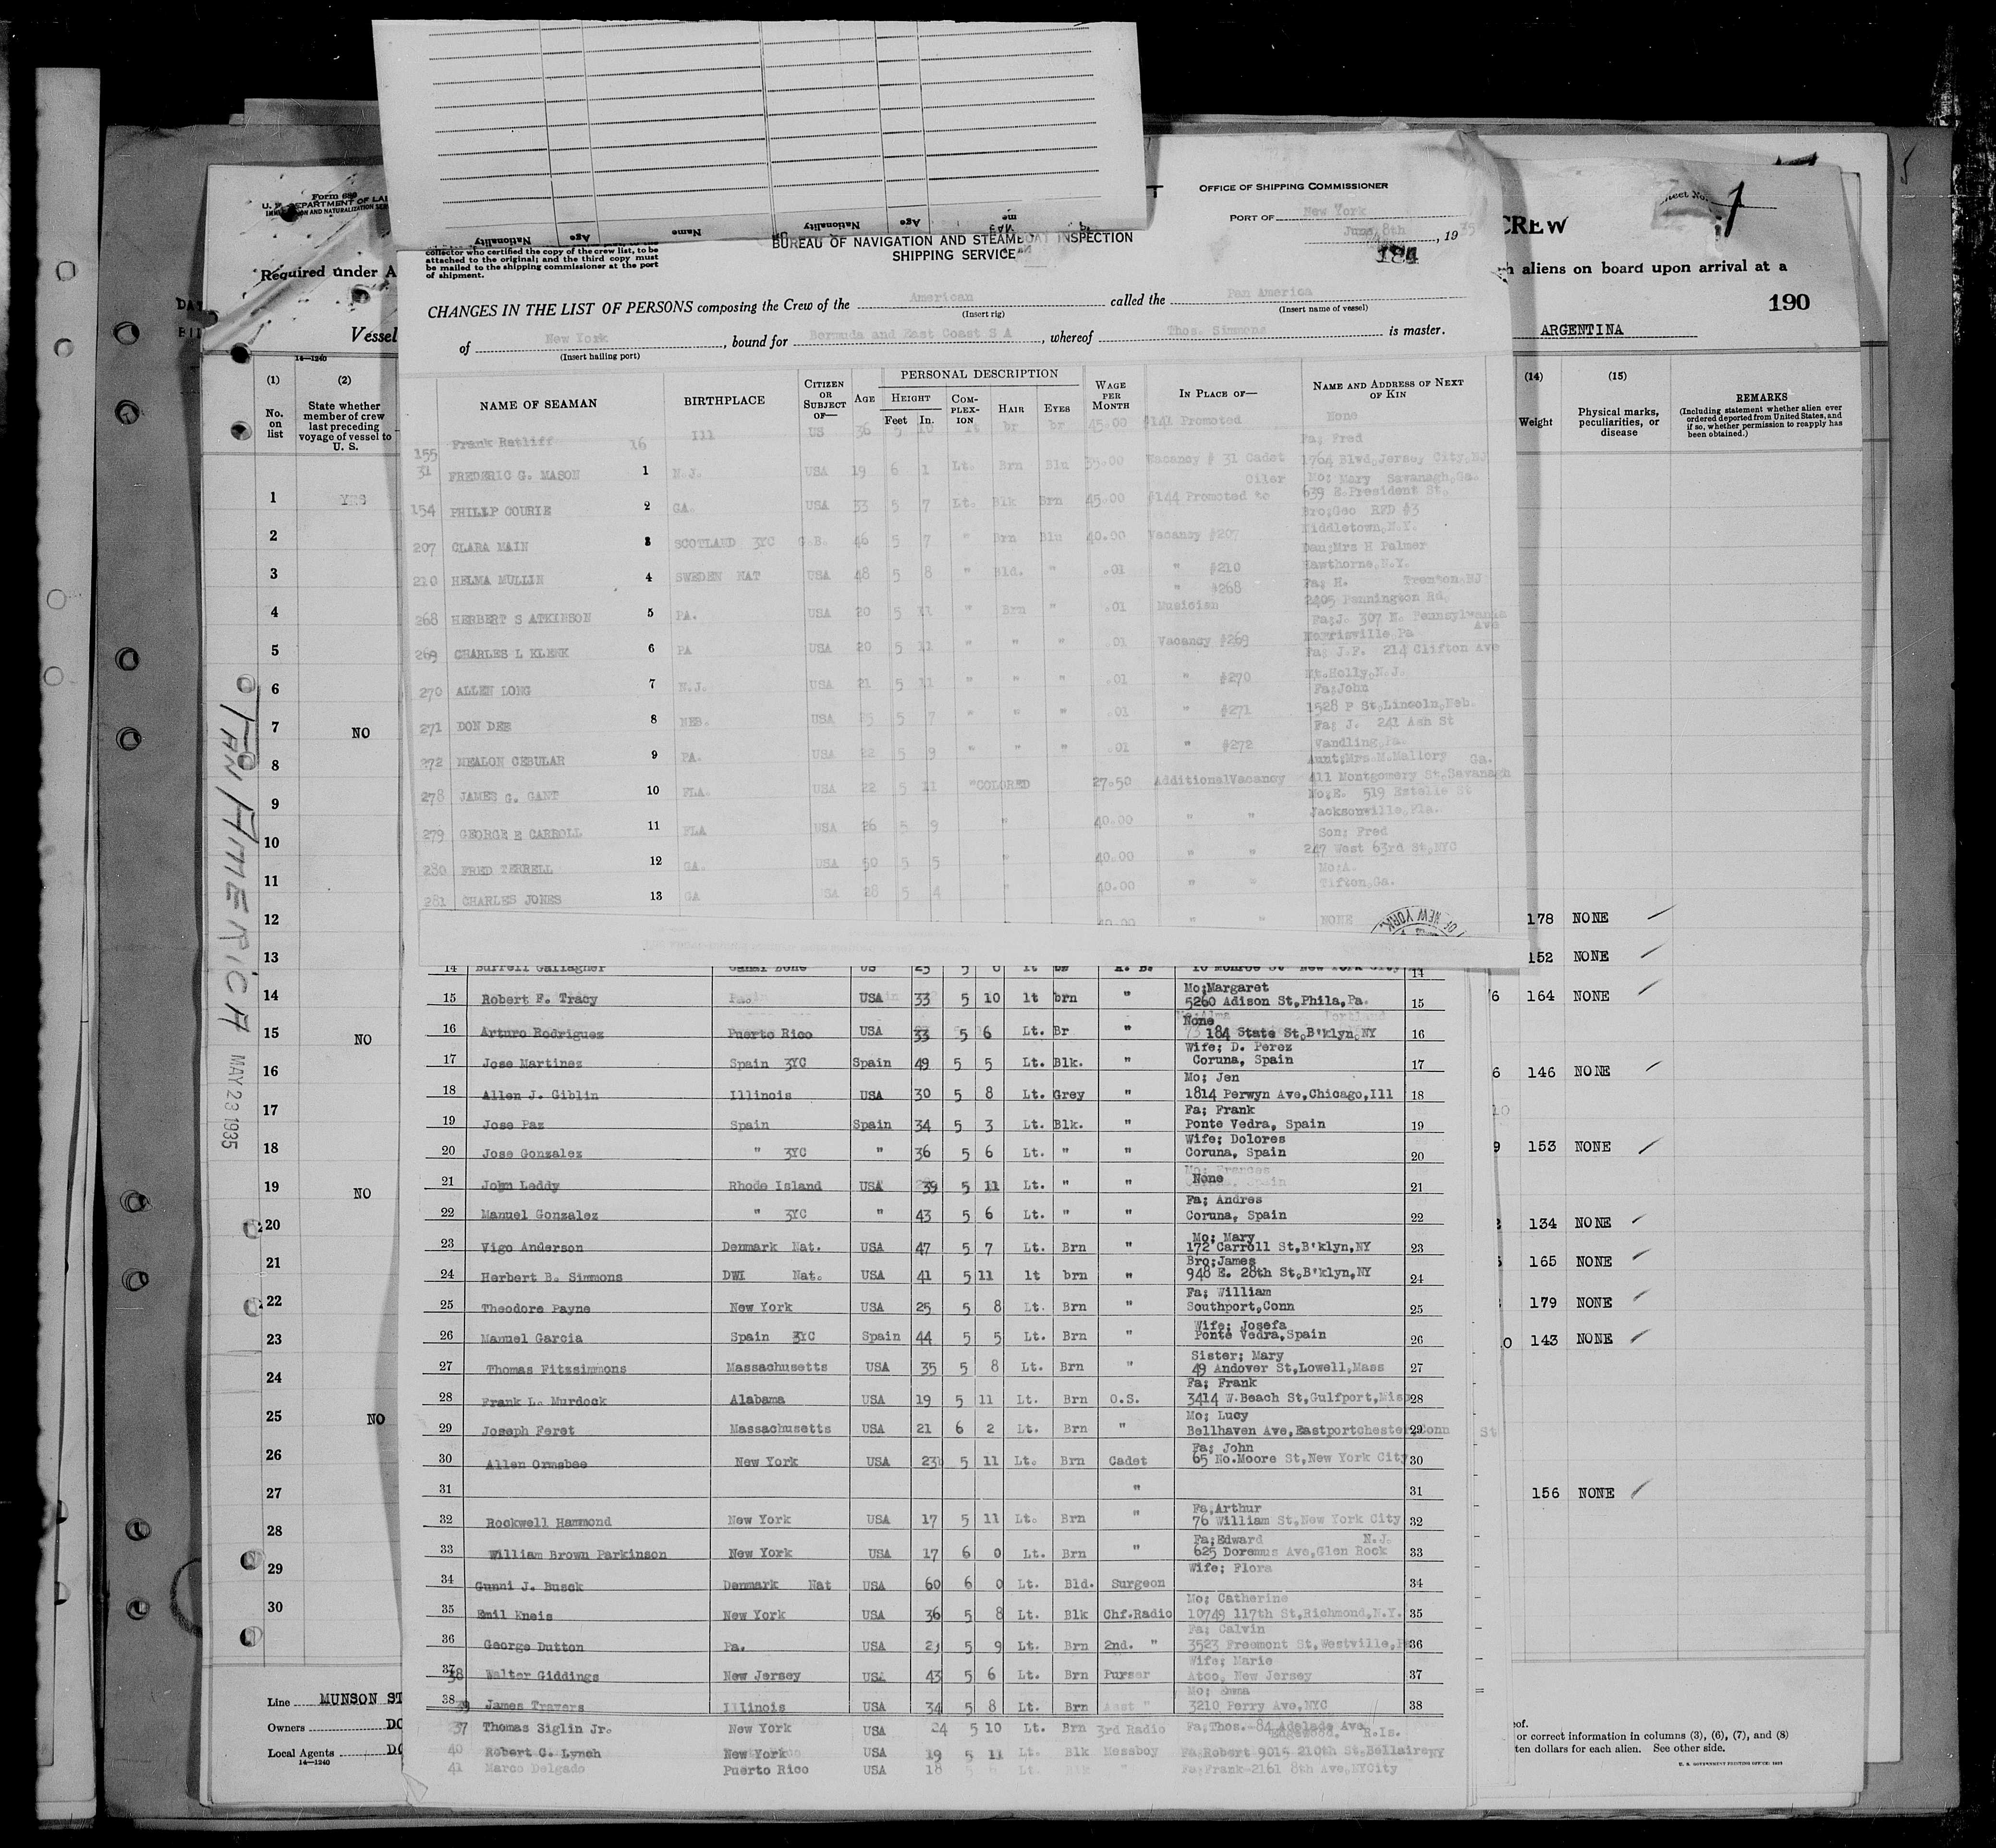 Nationality Age Name Nationality Age
Form 689
U. S. DEPARTMENT OF LA
IMMIGRATION AND NATURALIZATION SER
Required under A
Vessel
14—1240
(1) (2)
No. on list
State whether member of crew last preceding voyage of vessel to U. S.
1 YES
2
3
4
5
6
7 NO
8
9
10
11
12
13
14
15 NO
16
17
18
19 NO
20
21
22
23
24
25 NO
26
27
28
29
30
Line MUNSON ST
Owners DO
Local Agents DO
14—1240
PAN AMERICA MAY 23 1935
collector who certified the copy of the crew list, to be
attached to the original; and the third copy must
be mailed to the shipping commissioner at the port
of shipment.
BUREAU OF NAVIGATION AND STEAMBOAT INSPECTION
SHIPPING SERVICE
OFFICE OF SHIPPING COMMISSIONER
PORT OF New York
June, 8th, 1935
184
CHANGES IN THE LIST OF PERSONS composing the Crew of the American called the Pan America
(Insert rig) (Insert name of vessel)
of New York, bound for Bermuda and East Coast S A, whereof Thos. Simmons is master.
(Insert hailing port)
NAME OF SEAMAN BIRTHPLACE CITIZEN OR SUBJECT OF— AGE PERSONAL DESCRIPTION HEIGHT Feet In. COMPLEXION HAIR EYES WAGE PER MONTH IN PLACE OF— NAME AND ADDRESS OF NEXT OF KIN
155 Frank Ratliff 16 Ill US 36 5 10 lt br br 45.00 #141 Promoted None
Fa; Fred
31 FREDERIC G. MASON 1 N.J. USA 19 6 1 Lt. Brn Blu 35.00 Vacancy # 31 Cadet 1764 Blvd,Jersey City,NJ
Oiler Mo; Mary Savanagh,Ga.
154 PHILIP COURIE 2 GA. USA 33 5 7 Lt. Blk Brn 45.00 #144 Promoted to 639 E.President St.
Bro;Geo RFD #3
207 CLARA MAIN 3 SCOTLAND 3YC G.B. 46 5 7 " Brn Blu 40.00 Vacancy #207 Middletown,N.Y.
Dau;Mrs H Palmer
210 HELMA MULLIN 4 SWEDEN NAT USA 48 5 8 " Bld. " .01 " #210 Hawthorne,N.Y.
" #268 Fa; H. Trenton NJ
268 HERBERT S ATKINSON 5 PA. USA 20 5 11 " Brn " .01 Musician 2405 Pennington Rd.
Fa;J. 307 N. Pennsylvania Ave
269 CHARLES L KLENK 6 PA USA 20 5 11 " " " .01 Vacancy #269 Morrisville,Pa
Fa; J.F. 214 Clifton Ave
270 ALLEN LONG 7 N.J. USA 21 5 11 " " " .01 " #270 Mt.Holly,N.J.
Fa;John
271 DON DEE 8 NEB. USA 25 5 7 " " " .01 " #271 1528 P St,Lincoln,Neb.
Fa; J. 241 Ash St
272 MEALON CEBULAR 9 PA. USA 22 5 9 " " " .01 " #272 Vandling,Pa.
Aunt;Mrs M.Mallory Ga.
278 JAMES G. GANT 10 FLA. USA 22 5 11 "COLORED 27.50 AdditionalVacancy 411 Montgomery St,Savanagh
Mo;E. 519 Estelle St
279 GEORGE E CARROLL 11 FLA USA 26 5 9 " 40.00 " " Jacksonville,Fla.
Son; Fred
280 FRED TERRELL 12 GA. USA 50 5 5 " 40.00 " " 247 West 63rd St,NYC
Mo;A.
281 CHARLES JONES 13 GA SA 28 5 4 " 40.00 " " Tifton,Ga.
40.00 " " NONE
OF NEW YORK
14 Burrell Gallagher Canal Zone US 25 5 8 lt br A. B. 10 Monroe St New York City 14
Mo;Margaret
15 Robert F. Tracy Pa. USA 33 5 10 lt brn " 5260 Adison St,Phila,Pa. 15
None
16 Arturo Rodriguez Puerto Rico USA 33 5 6 Lt. Br " 184 State St,B'klyn,NY 16
Wife; D. Perez
17 Jose Martinez Spain 3YC Spain 49 5 5 Lt. Blk. " Coruna, Spain 17
Mo; Jen
18 Allen J. Giblin Illinois USA 30 5 8 Lt. Grey " 1814 Perwyn Ave,Chicago,Ill 18
Fa; Frank
19 Jose Paz Spain Spain 34 5 3 Lt. Blk. " Ponte Vedra, Spain 19
Wife; Dolores
20 Jose Gonzalez " 3YC " 36 5 6 Lt. " " Coruna, Spain 20
21 John Leddy Rhode Island USA 39 5 11 Lt. " " None 21
Fa; Andres
22 Manuel Gonzalez " 3YC " 43 5 6 Lt. " " Coruna, Spain 22
Mo; Mary
23 Vigo Anderson Denmark Nat. USA 47 5 7 Lt. Brn " 172 Carroll St,B'klyn,NY 23
Bro;James
24 Herbert B. Simmons DWI Nat. USA 41 5 11 lt brn " 948 E. 28th St,B'klyn,NY 24
Fa; William
25 Theodore Payne New York USA 25 5 8 Lt. Brn " Southport,Conn 25
Wife; Josefa
26 Manuel Garcia Spain 3YC Spain 44 5 5 Lt. Brn " Ponte Vedra,Spain 26
Sister; Mary
27 Thomas Fitzsimmons Massachusetts USA 35 5 8 Lt. Brn " 49 Andover St,Lowell,Mass 27
Fa; Frank
28 Frank L. Murdock Alabama USA 19 5 11 Lt. Brn O.S. 3414 W.Beach St,Gulfport,Miss 28
Mo; Lucy
29 Joseph Feret Massachusetts USA 21 6 2 Lt. Brn " Bellhaven Ave,Eastportchester,Conn 29
Fa; John
30 Allen Ormsbee New York USA 23 5 11 Lt. Brn Cadet 65 No.Moore St,New York City 30
31 " 31
Fa,Arthur
32 Rockwell Hammond New York USA 17 5 11 Lt. Brn " 76 William St,New York City 32
Fa;Edward N.J.
33 William Brown Parkinson New York USA 17 6 0 Lt. Brn " 625 Doremus Ave,Glen Rock 33
Wife; Flora
34 Gunni J. Busck Denmark Nat USA 60 6 0 Lt. Bld. Surgeon 34
Mo; Catherine
35 Emil Kneis New York USA 36 5 8 Lt. Blk Chf.Radio 10749 117th St,Richmond,N.Y. 35
Fa; Calvin
36 George Dutton Pa. USA 23 5 9 Lt. Brn 2nd. " 3523 Freomont St,Westville,P 36
Wife; Marie
37 38 Walter Giddings New Jersey USA 43 5 6 Lt. Brn Purser Atco, New Jersey 37
Mo; Emma
38 39 James Travers Illinois USA 34 5 8 Lt. Brn Asst " 3210 Perry Ave,NYC 38
37 Thomas Siglin Jr. New York USA 24 5 10 Lt. Brn 3rd Radio Fa;Thos. 84 Adelade Ave
Edgewood. R.Is.
40 Robert C. Lynch New York USA 19 5 11 Lt. Blk Messboy Fa Robert 9015 210th St,Bellaire NY
41 Marco Delgado Puerto Rico USA 18 5 6 Lt. Blk " Fa;Frank-2161 8th Ave,NYCity
Sheet No. 1
CREW
h aliens on board upon arrival at a
190
ARGENTINA
(14) (15)
Weight
Physical marks, peculiarities, or disease
REMARKS
(Including statement whether alien ever ordered deported from United States, and if so, whether permission to reapply has been obtained.)
178 NONE
152 NONE
164 NONE
146 NONE
153 NONE
134 NONE
165 NONE
179 NONE
143 NONE
156 NONE
eof.
or correct information in columns (3), (6), (7), and (8)
ten dollars for each alien. See other side.
U. S. GOVERNMENT PRINTING OFFICE